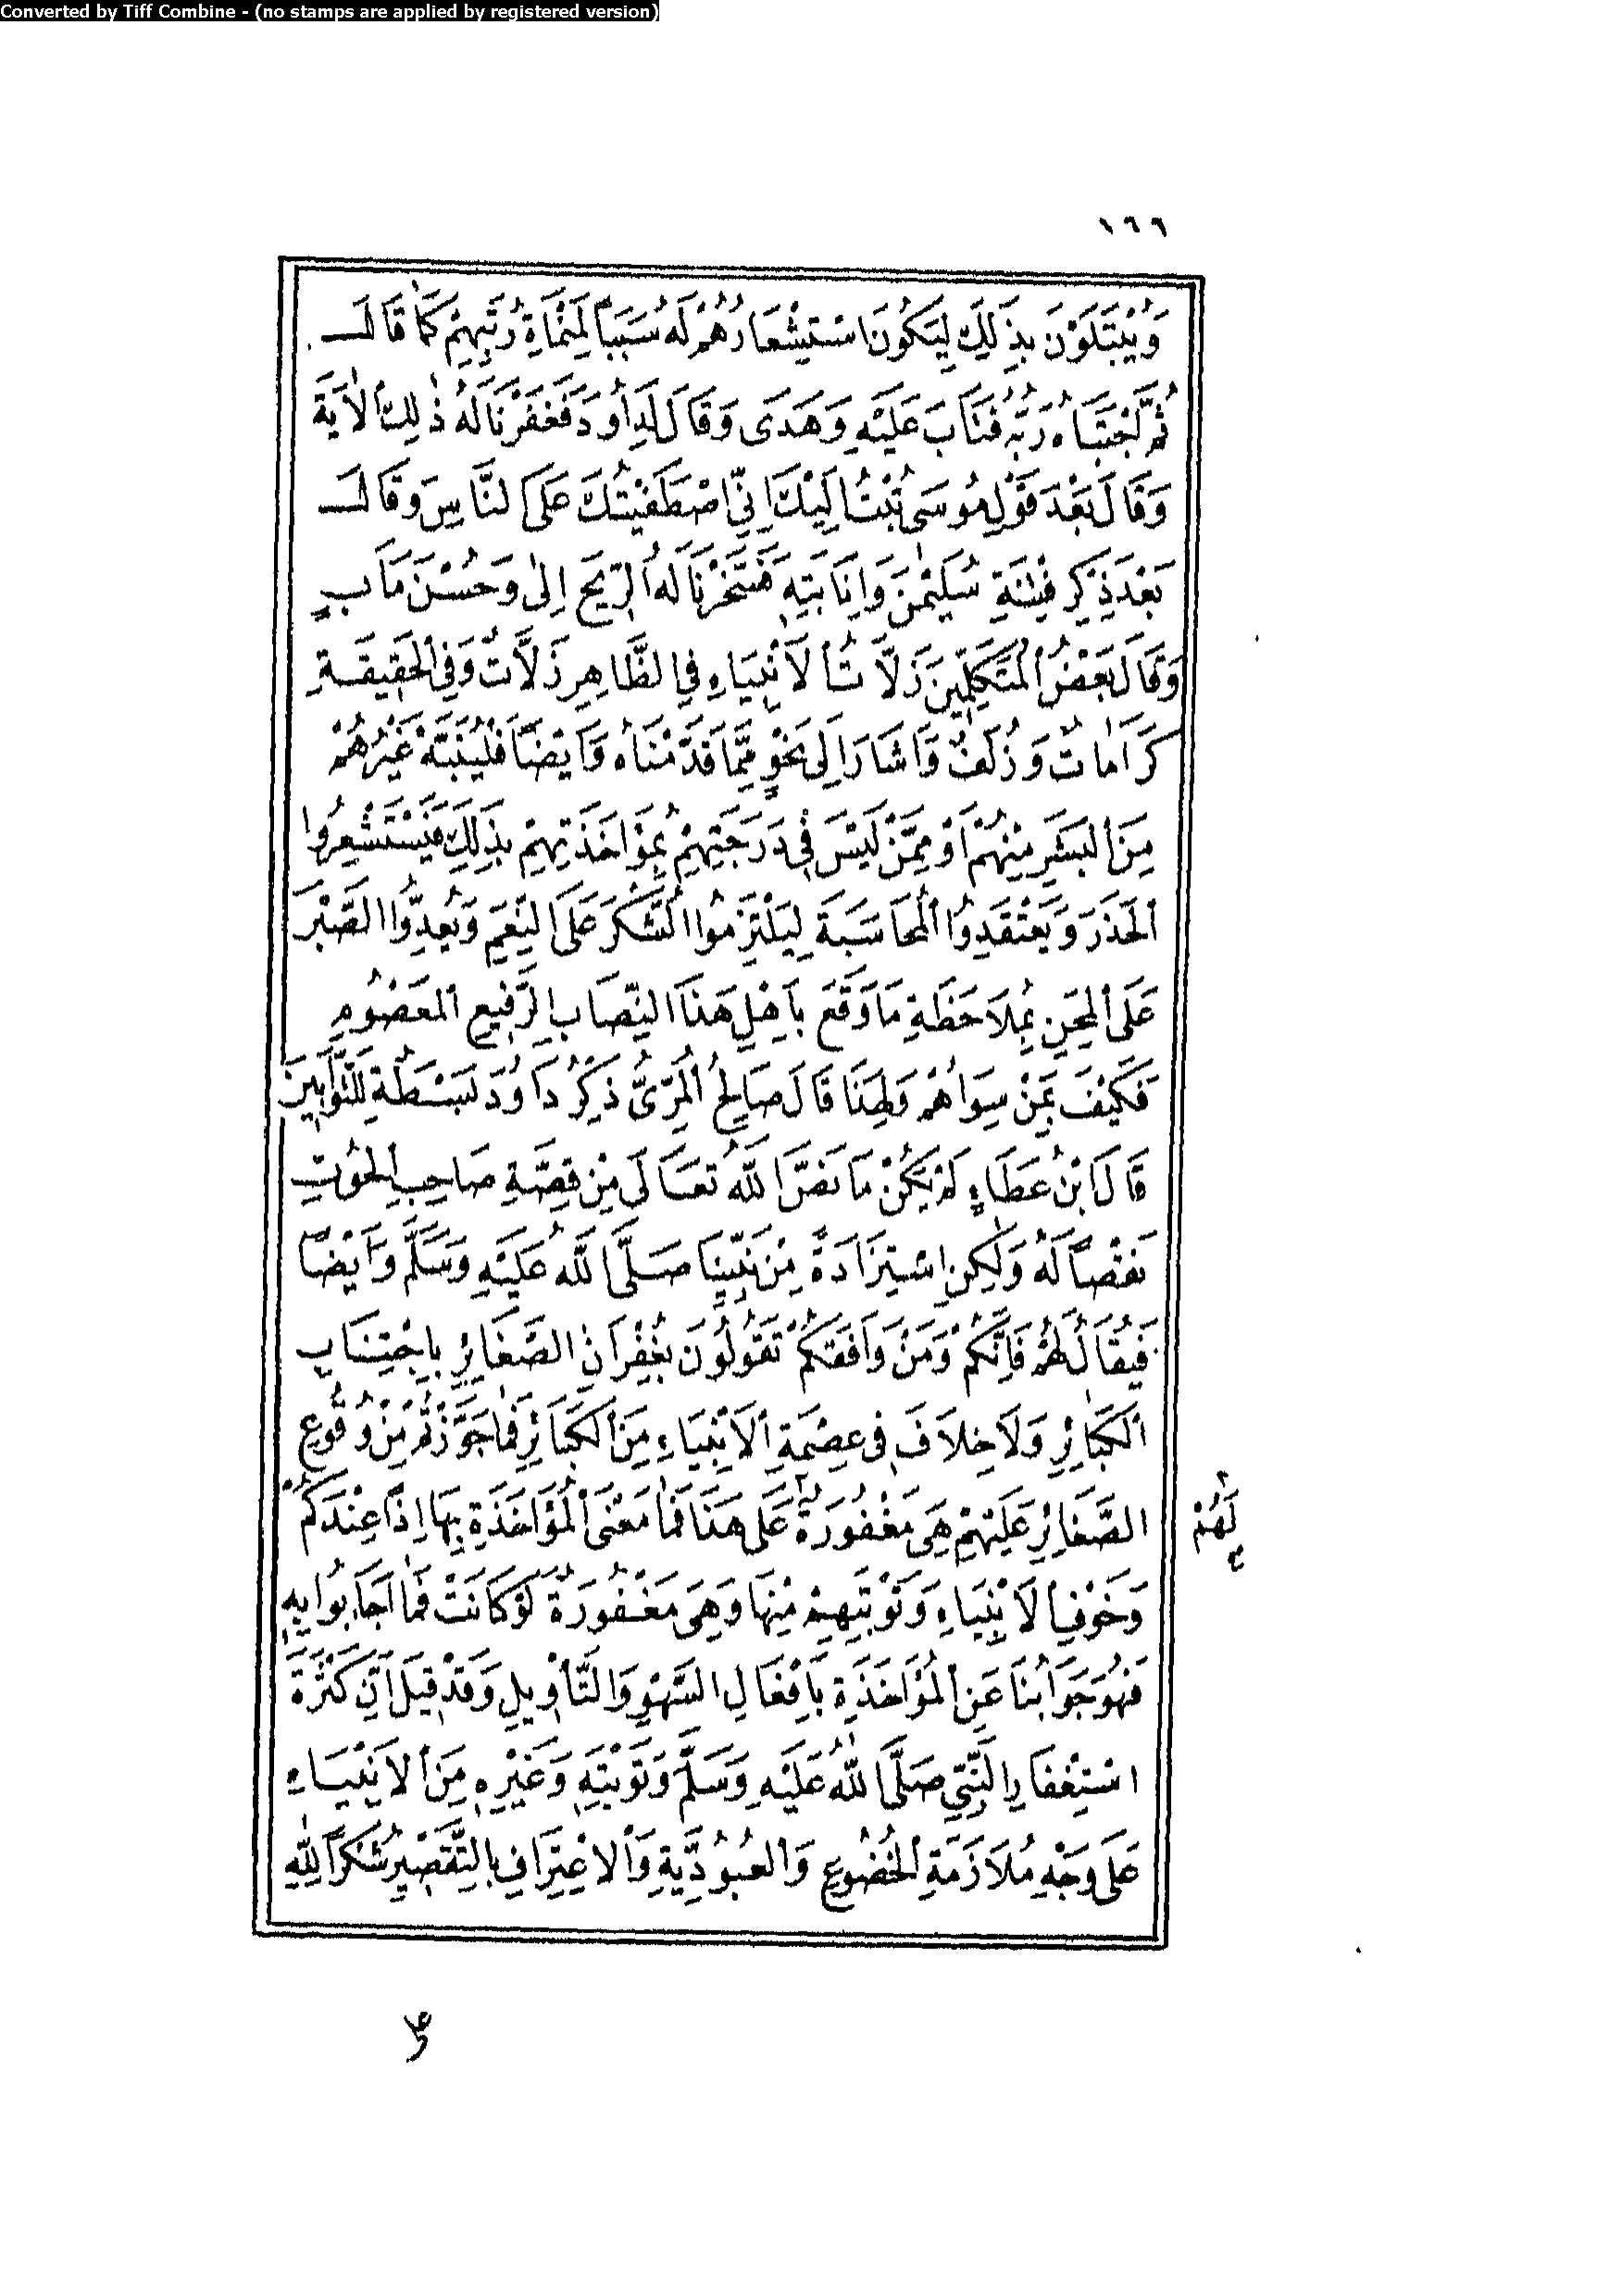 Converted by Tiff Combine - (no stamps are applied by registered version)
١٦٦
وَيُبْتَلَوْنَ بِذٰلِكَ لِيَكُونَ اسْتِشْعَارُهُمْ لَهُ سَبَباً لِمَنْمَاةِ رُتَبِهِمْ كَمَا قَالَ
ثُمَّ اجْتَبَاهُ رَبُّهُ فَتَابَ عَلَيْهِ وَهَدَى وَقَالَ لِدَاوُدَ فَغَفَرْنَا لَهُ ذٰلِكَ الْآيَةَ
وَقَالَ بَعْدَ قَوْلِ مُوسَى تُبْتُ إِلَيْكَ اِنِّي اصْطَفَيْتُكَ عَلَى النَّاسِ وَقَالَ
بَعْدَ ذِكْرِ فِتْنَةِ سُلَيْمٰنَ وَاِنَابَتِهِ فَسَخَّرْنَا لَهُ الرِّيحَ اِلٰى وَحُسْنَ مَآبٍ
وَقَالَ بَعْضُ الْمُتَكَلِّمِينَ زَلَّاتُ الْأَنْبِيَاءِ فِي الظَّاهِرِ زَلَّاتٌ وَفِي الْحَقِيقَةِ
كَرَامَاتٌ وَزُلَفٌ وَاَشَارَ اِلَى نَحْوٍ مِمَّا قَدَّمْنَاهُ وَاَيْضًا فَلْيُنَبَّهْ غَيْرُهُمْ
مِنَ الْبَشَرِ مِنْهُمْ اَوْ مِمَّنْ لَيْسَ فِي دَرَجَتِهِمْ بِمُؤَاخَذَتِهِمْ بِذٰلِكَ فَيَسْتَشْعِرُوا
الْحَذَرَ وَيَعْتَقِدُوا الْمُحَاسَبَةَ لِيَلْتَزِمُوا الشُّكْرَ عَلَى النِّعَمِ وَيُعِدُّوا الصَّبْرَ
عَلَى الْمِحَنِ بِمُلَاحَظَةِ مَا وَقَعَ بِأَهْلِ هَذَا النِّصَابِ الرَّفِيعِ الْمَعْصُومِ
فَكَيْفَ بِمَنْ سِوَاهُمْ وَلِهٰذَا قَالَ صَالِحٌ الْمُرِّيُّ ذِكْرُ دَاوُدَ بَسْطَةٌ لِلتَّوَّابِينَ
قَالَ ابْنُ عَطَاءٍ لَمْ يَكُنْ مَا نَصَّ اللّٰهُ تَعَالَى مِنْ قِصَّةِ صَاحِبِ الْحُوتِ
نَقْصًا لَهُ وَلٰكِنِ اسْتِزَادَةً مِنْ نَبِيِّنَا صَلَّى اللّٰهُ عَلَيْهِ وَسَلَّمَ وَاَيْضًا
فَيُقَالُ لَهُمْ فَاِنَّكُمْ وَمَنْ وَافَقَكُمْ تَقُولُونَ بِغُفْرَانِ الصَّغَائِرِ بِاجْتِنَابِ
الْكَبَائِرِ وَلَا خِلَافَ فِي عِصْمَةِ الْأَنْبِيَاءِ مِنَ الْكَبَائِرِ فَمَا جَوَّزْتُمْ مِنْ وُقُوعِ
الصَّغَائِرِ عَلَيْهِمْ هِيَ مَغْفُورَةٌ عَلَى هَذَا فَمَا مَعْنَى الْمُؤَاخَذَةِ بِهَا اِذًا عِنْدَكُمْ
لَهُمْ
وَخَوْفِ الْأَنْبِيَاءِ وَتَوْبَتِهِمْ مِنْهَا وَهِيَ مَغْفُورَةٌ لَوْ كَانَتْ فَمَا اَجَابُوا بِهِ
فَهُوَ جَوَابُنَا عَنِ الْمُؤَاخَذَةِ بِاَفْعَالِ السَّهْوِ وَالتَّأْوِيلِ وَقَدْ قِيلَ اِنَّ كَثْرَةَ
اسْتِغْفَارِ النَّبِيِّ صَلَّى اللّٰهُ عَلَيْهِ وَسَلَّمَ وَتَوْبَتِهِ وَغَيْرِهِ مِنَ الْأَنْبِيَاءِ
عَلَى وَجْهِ مُلَازَمَةِ الْخُضُوعِ وَالْعُبُودِيَّةِ وَالْاِعْتِرَافِ بِالتَّقْصِيرِ شُكْرًا لِلّٰهِ